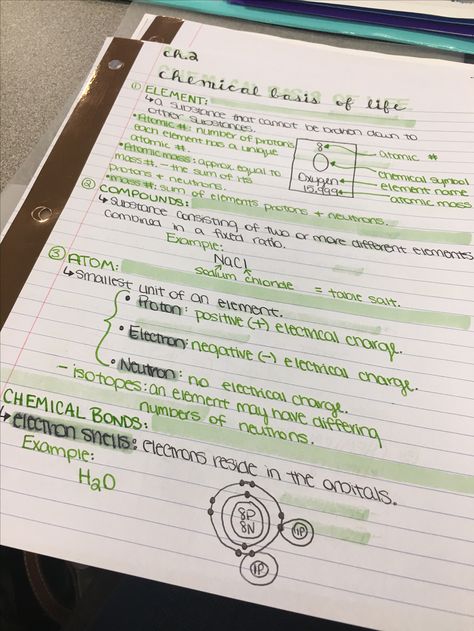 ch.2
chemical basis of life
① ELEMENT:
↳ a substance that cannot be broken down to
other substances.
• Atomic #: number of protons
each element has a unique
atomic #.
• Atomic mass: approx. equal to
mass #. - the sum of its
protons + neutrons.
• mass #: sum of elements protons + neutrons.
8
O
Oxygen
15.999
Atomic #
chemical symbol
element name
atomic mass
② COMPOUNDS:
↳ substance consisting of two or more different elements
combined in a fixed ratio.
Example:
NaCl
sodium chloride = table salt.
③ ATOM:
↳ smallest unit of an element.
• Proton: positive (+) electrical charge.
• Electron: negative (-) electrical charge.
• Neutron: no electrical charge.
- isotopes: an element may have differing
numbers of neutrons.
CHEMICAL BONDS:
↳ electron shells: electrons reside in the orbitals.
Example:
H₂O
8P
8N
1P
1P